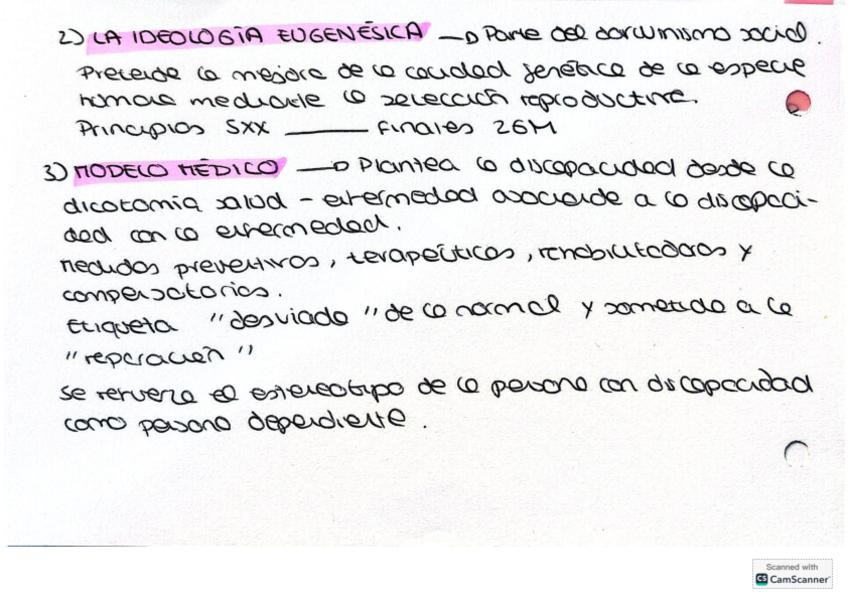 2) LA IDEOLOGÍA EUGENÉSICA → Parte del darwinismo social.
Pretende la mejora de la calidad genética de la especie
humana mediante la selección reproductiva.
Principios SXX —— Finales 2GM
3) MODELO MÉDICO → Plantea la discapacidad desde la
dicotomía salud - enfermedad asociando a la discapaci-
dad con la enfermedad.
Medidas preventivas, terapéuticas, rehabilitadoras y
compensatorias.
Etiqueta "desviado" de lo normal y sometido a la
"reparación"
Se refuerza el estereotipo de la persona con discapacidad
como persona dependiente.
Scanned with
CS CamScanner